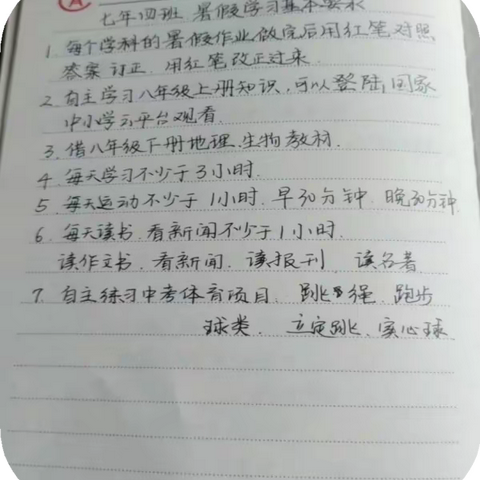 A
七年四班 暑假学习基本要求
1. 每个学科的暑假作业做完后用红笔对照
答案订正. 用红笔改正过来.
2. 自主学习八年级上册知识,可以登陆国家
中小学云平台观看.
3. 借八年级下册地理.生物教材.
4. 每天学习不少于3小时.
5. 每天运动不少于1小时. 早30分钟. 晚30分钟.
6. 每天读书.看新闻不少于1小时.
读作文书. 看新闻. 读报刊 读名著
7. 自主练习中考体育项目. 跳绳. 跑步
球类. 立定跳. 实心球